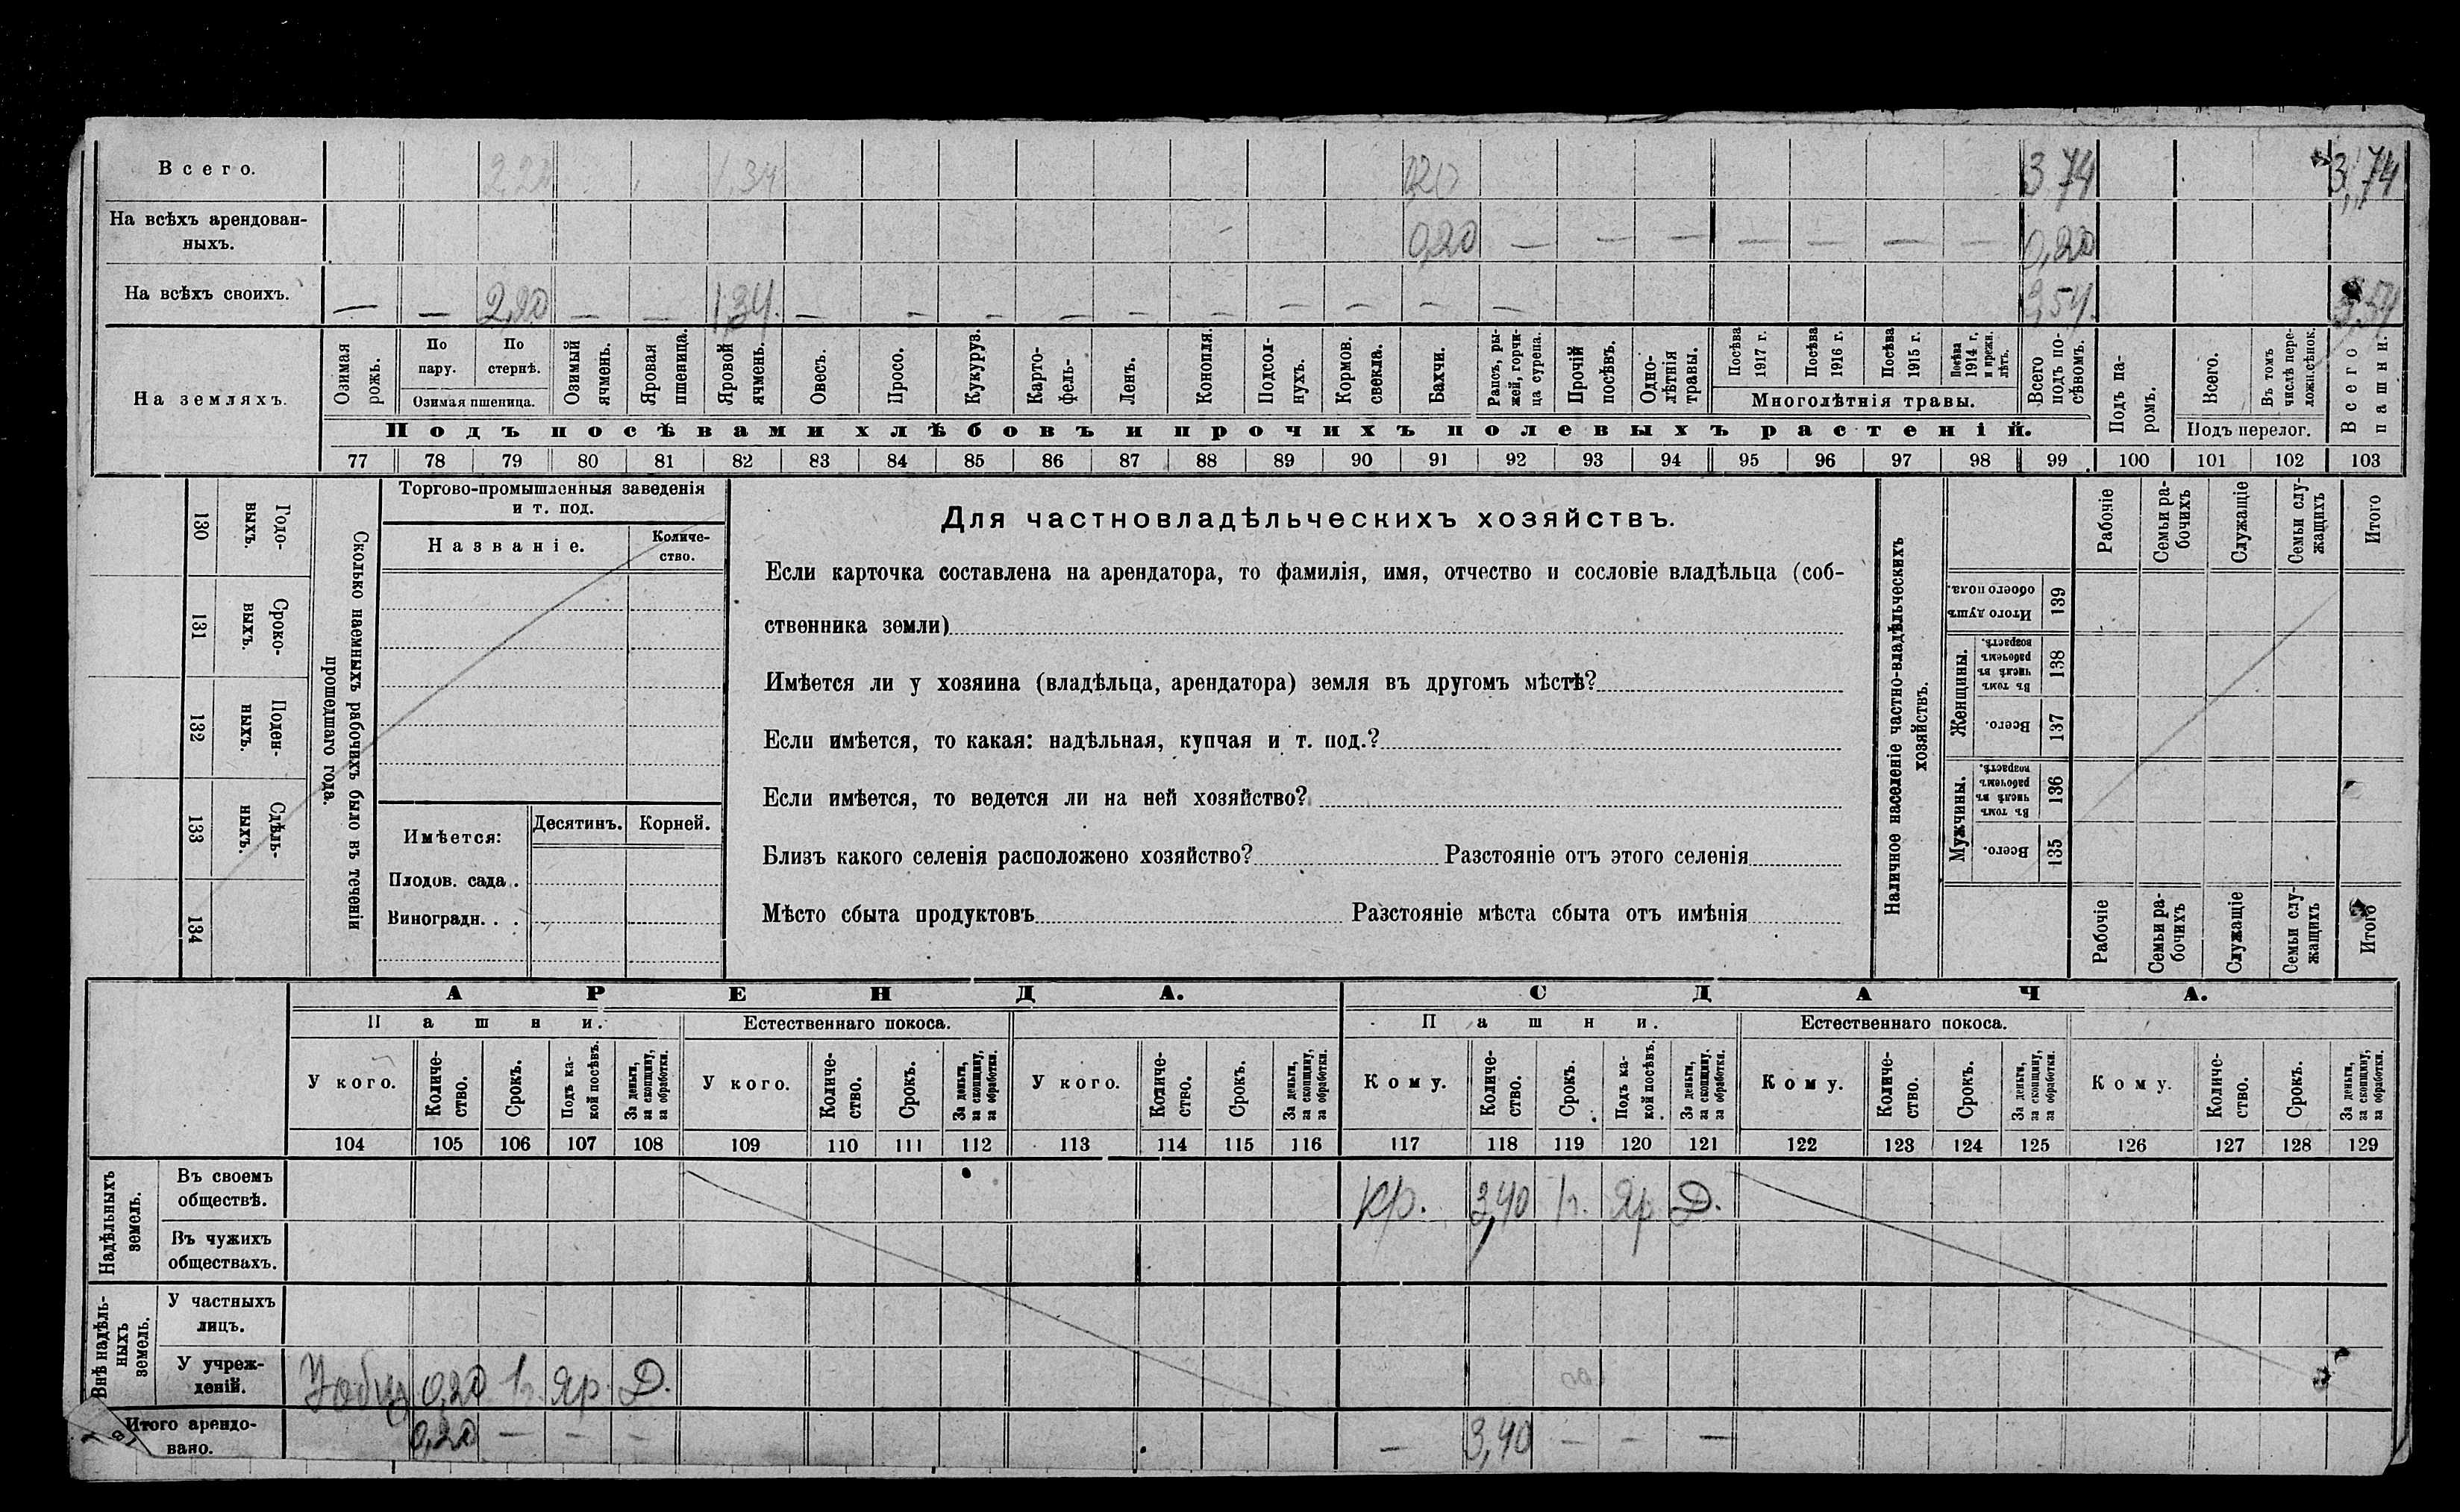 Всего. 2,20 1,34 0,20 3 74 3,74
На всѣхъ арендован-
ныхъ. 0,20 — — — — — — — 0,20
На всѣхъ своихъ. — — 2,20 — — 1,34. — — — — — — — — — — 3,54. 3,54
На земляхъ.
Озимая рожь.
По пару.
По стернѣ.
Озимая пшеница.
Озимый ячмень.
Яровая пшеница.
Яровой ячмень.
Овесъ.
Просо.
Кукуруз.
Карто-
фель-
Ленъ.
Конопля.
Подсол-
нухъ.
Кормов.
свекла.
Бахчи.
Рапсъ, ры-
жей, горчи-
ца сурепа.
Прочій
посѣвъ.
Одно-
лѣтнія
травы.
Посѣва
1917 г.
Посѣва
1916 г.
Посѣва
1915 г.
Посѣва
1914 г.
и прежн.
лѣтъ.
Многолѣтнія травы.
Всего
подъ по-
сѣвомъ.
Подъ па-
ромъ.
Всего.
Въ томъ
числѣ пере-
Подъ перелог.
Всего
пашни.
Подъ посѣвами хлѣбовъ и прочихъ полевыхъ растеній.
77 78 79 80 81 82 83 84 85 86 87 88 89 90 91 92 93 94 95 96 97 98 99 100 101 102 103
Годо-
выхъ.
130
Сроко-
выхъ.
131
Поден-
ныхъ.
132
Сдѣль-
ныхъ.
133
134
Сколько наемныхъ рабочихъ было въ теченіи
прошедшаго года.
Торгово-промышленныя заведенія
и т. под.
Названіе.
Количе-
ство.
Имѣется:
Десятинъ.
Корней.
Плодов. сада .
Виноградн. . .
Для частновладѣльческихъ хозяйствъ.
Если карточка составлена на арендатора, то фамилія, имя, отчество и сословіе владѣльца (соб-
ственника земли)
Имѣется ли у хозяина (владѣльца, арендатора) земля въ другомъ мѣстѣ?
Если имѣется, то какая: надѣльная, купчая и т. под.?
Если имѣется, то ведется ли на ней хозяйство?
Близъ какого селенія расположено хозяйство? Разстояніе отъ этого селенія
Мѣсто сбыта продуктовъ Разстояніе мѣста сбыта отъ имѣнія
Наличное населеніе частно-владѣльческихъ
хозяйствъ.
Рабочіе
Семьи ра-
бочихъ
Служащіе
Семьи слу-
жащихъ
Итого
Итого душъ
обоего пола.
139
Женщины.
Въ томъ
числѣ въ
рабочемъ
возрастѣ.
138
Всего.
137
Мужчины.
Въ томъ
числѣ въ
рабочемъ
возрастѣ.
136
Всего.
135
Рабочіе
Семьи ра-
бочихъ
Служащіе
Семьи слу-
жащихъ
Итого
АРЕНДА. СДАЧА.
Пашни. Естественнаго покоса. Пашни. Естественнаго покоса.
У кого.
Количе-
ство.
Срокъ.
Подъ ка-
кой посѣвъ.
За деньги,
за скопщину,
за обработки.
У кого.
Количе-
ство.
Срокъ.
За деньги,
за скопщину,
за обработки.
У кого.
Количе-
ство.
Срокъ.
За деньги,
за скопщину,
за обработки.
Кому.
Количе-
ство.
Срокъ.
Подъ ка-
кой посѣвъ.
За деньги,
за скопщину,
за обработки.
Кому.
Количе-
ство.
Срокъ.
За деньги,
за скопщину,
за обработки.
Кому.
Количе-
ство.
Срокъ.
За деньги,
за скопщину,
за обработки.
104 105 106 107 108 109 110 111 112 113 114 115 116 117 118 119 120 121 122 123 124 125 126 127 128 129
Надѣльныхъ
земель.
Въ своемъ
обществѣ. Кр. 3,40 1г. Яр Д.
Въ чужихъ
обществахъ.
Внѣ надѣль-
ныхъ
земель.
У частныхъ
лицъ.
У учреж-
деній. 0,20 1г. Яр. Д.
Итого арендо-
вано. 0,20 — — — — 3,40 — — —